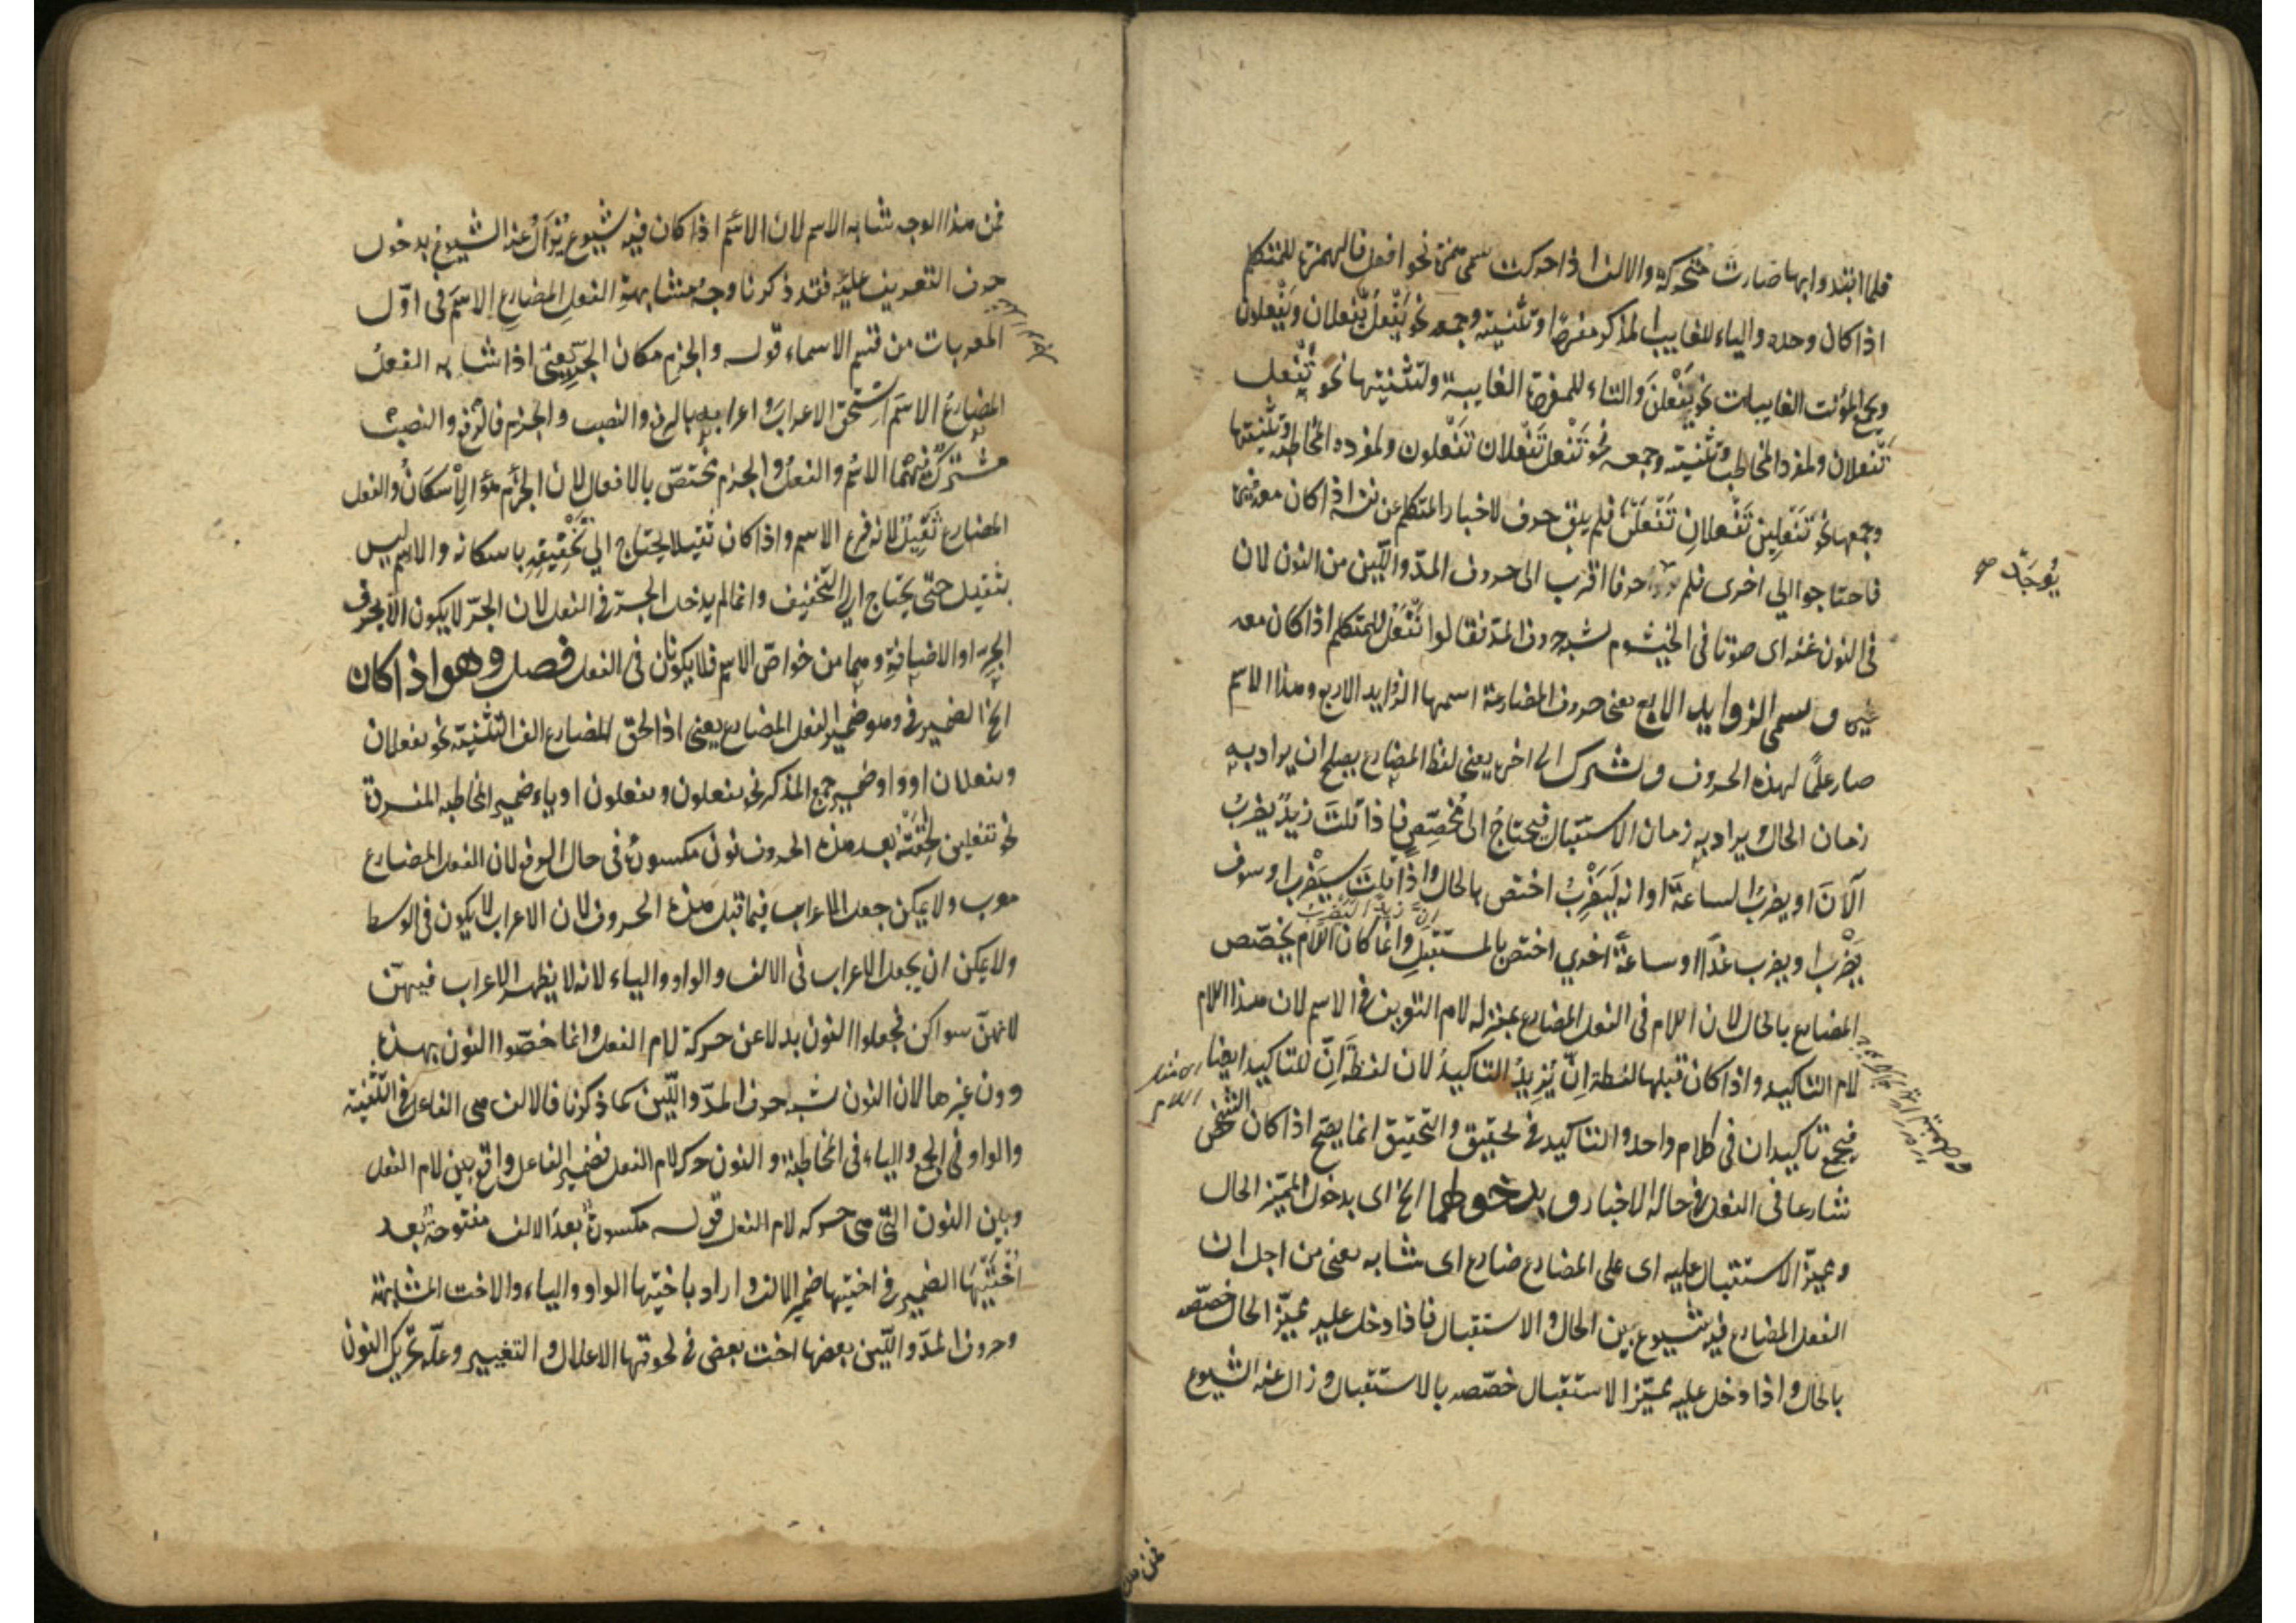 فلما ابتدوا بها صارت متحركة والالف اذا حركت سمى همزة نحو افعل فالهمزة للمتكلم
اذا كان وحده والياء للغايب المذكر مفردا وتثنيته وجمعه نحو يَفْعل يَفْعلان ويَفْعلون
وجمع المؤنث الغايبات نحو يَفْعلنَ والتاء للمفردة الغايبة ولتثنيتها نحو تَفْعل
تَفْعلان ولمفرد المخاطب وتثنيته وجمعه نحو تَفْعل تَفْعلان تَفْعلون ولمفرده المخاطبة وتثنيتها
وجمعها نحو تَفْعلين تَفْعلانِ تَفْعلنَ فلم يبق حرف لاخبار المتكلم عن نفسه اذا كان معه غيره
فاحتاجوا الي اخرى فلم حرفا اقرب الى حروف المدّ واللّين من النون لان
يُوجَدْ صح
فى النون غنه اى صوتا فى الخيشوم لشبه حروف المدّ فقالوا نَفْعَلُ للمتكلم اذا كان معه
غيره ويسمى الزوايد الاربع يعنى حروف المضارعة اسمها الزوايد الاربع وهذا الاسم
صار علمًا لهذه الحروف ويشترك الى اخره يعنى لفظ المضارع يصلح ان يراد به
زمان الحال ويراد به زمان الاستقبال فيحتاجُ الى مُخَصِّصٍ فاذا قلتَ زيدٌ يضربُ
الآنَ او يضربُ الساعةَ او انه لَيَضْرِبُ اختص بالحال واذا قلتَ سيَضْرب او سوف
انَّ زيدا لَيَضْرِبُ
يَضْرب او يضرب غدًا او ساعةً اخري اختص بالمستقبلِ وانما كان اللام يخصّص
المضارع بالحال لان اللام فى الفعل المضارع بمنزله لام التعريف فى الاسم لان هذا اللام
لام التاكيد واذا كان قبلها لفظة انّ يُزيدُ التاكيدُ لان لفظةَ اِنّ للتاكيد ايضا
فيجمع تاكيدان فى كلام واحد والتاكيد فى تحقيق والتحقيق انما يصح اذا كان الشخص
شارعا فى الفعل فى حالة الاخبار وبدخولهما الخ اى بدخول المميّز الحال
ومميّز الاستقبال عليه اى على المضارع ضارع اى شابه يعنى من اجل ان
الفعل المضارع فيه شيوع بين الحال والاستقبال فاذا دخل عليه مميّز الحال خصّصه
بالحال واذا دخل عليه مميّز الاستقبال خصّصه بالاستقبال وزال عنه الشيوع
فمن هذا
فمن هذا الوجه شابه الاسم لان الاسم اذا كان فيه شيوع يُزالُ عنه الشيوع بدخول
حرف التعريف عليه فقد ذكرنا وجهُ مشابهةِ الفعلِ المضارعِ الاسمَ فى اوّل
المعربات من قسم الاسماء قوله والجزم مكان الجرّ يعنى اذا شابه الفعلُ
المضارعُ الاسمَ استحق الاعرابَ واعرابه بالرفع والنصب والجزم فالرفع والنصب
مشتركٌ فيهما الاسمُ والفعلُ والجزم مختصّ بالافعال لان الجزم هو الاسكانُ والفعل
المضارع ثقيلٌ لانه فرع الاسم واذا كان ثقيلا يحتاج الي تخفيفِه باسكانه والاسم ليس
بثقيل حتّى يحتاج الى التخفيف وانما لم يدخل الجر فى الفعل لان الجرّ لا يكون الّا بحرف
الجرّ او الاضافةِ وهما من خواصّ الاسم فلا يكونان فى الفعل فصل وهو اذا كان
الخ الضمير فى وهو ضمير الفعل المضارع يعنى اذا لحق المضارع الف التثنيته نحو يفعلان
وتفعلان او واو ضمير جمع المذكر نحو يفعلون وتفعلون او ياء ضمير المخاطبه المفردة
نحو تفعلين لحقَتْه بعد هذه الحروف نونٌ مكسورةٌ فى حال الرفع لان الفعل المضارع
معرب ولا يمكن جعل الاعراب فيما قبل هذه الحروف لان الاعراب لا يكون فى الوسط
ولا يمكن ان يجعل الاعراب فى الالف والواو والياء لانه لا يظهر الاعراب فيهنّ
لانهنّ سواكن فجعلوا النون بدلا عن حركة لام الفعل وانما خصّوا النون بهذه
دون غيرها لان النون شبه حروف المدّ واللّين كما ذكرنا فالالف هى الفاعل فى التثنيته
والواو فى الجمع والياء فى المخاطبة والنون حركه لام الفعل فضمير الفاعل واقع بين لام الفعل
وبين النون التى هى حركه لام الفعل قوله مكسورةٌ بعدَ الالف مفتوحةٌ بعد
اُختَيْها الضمير فى اختيها ضمير الالف واراد باختيها الواو والياء والاخت المشابهة
وحروف المدّ واللّين بعضها اخت بعض فى لحوقها الاعلال والتغيير وعلّه تحريك النون